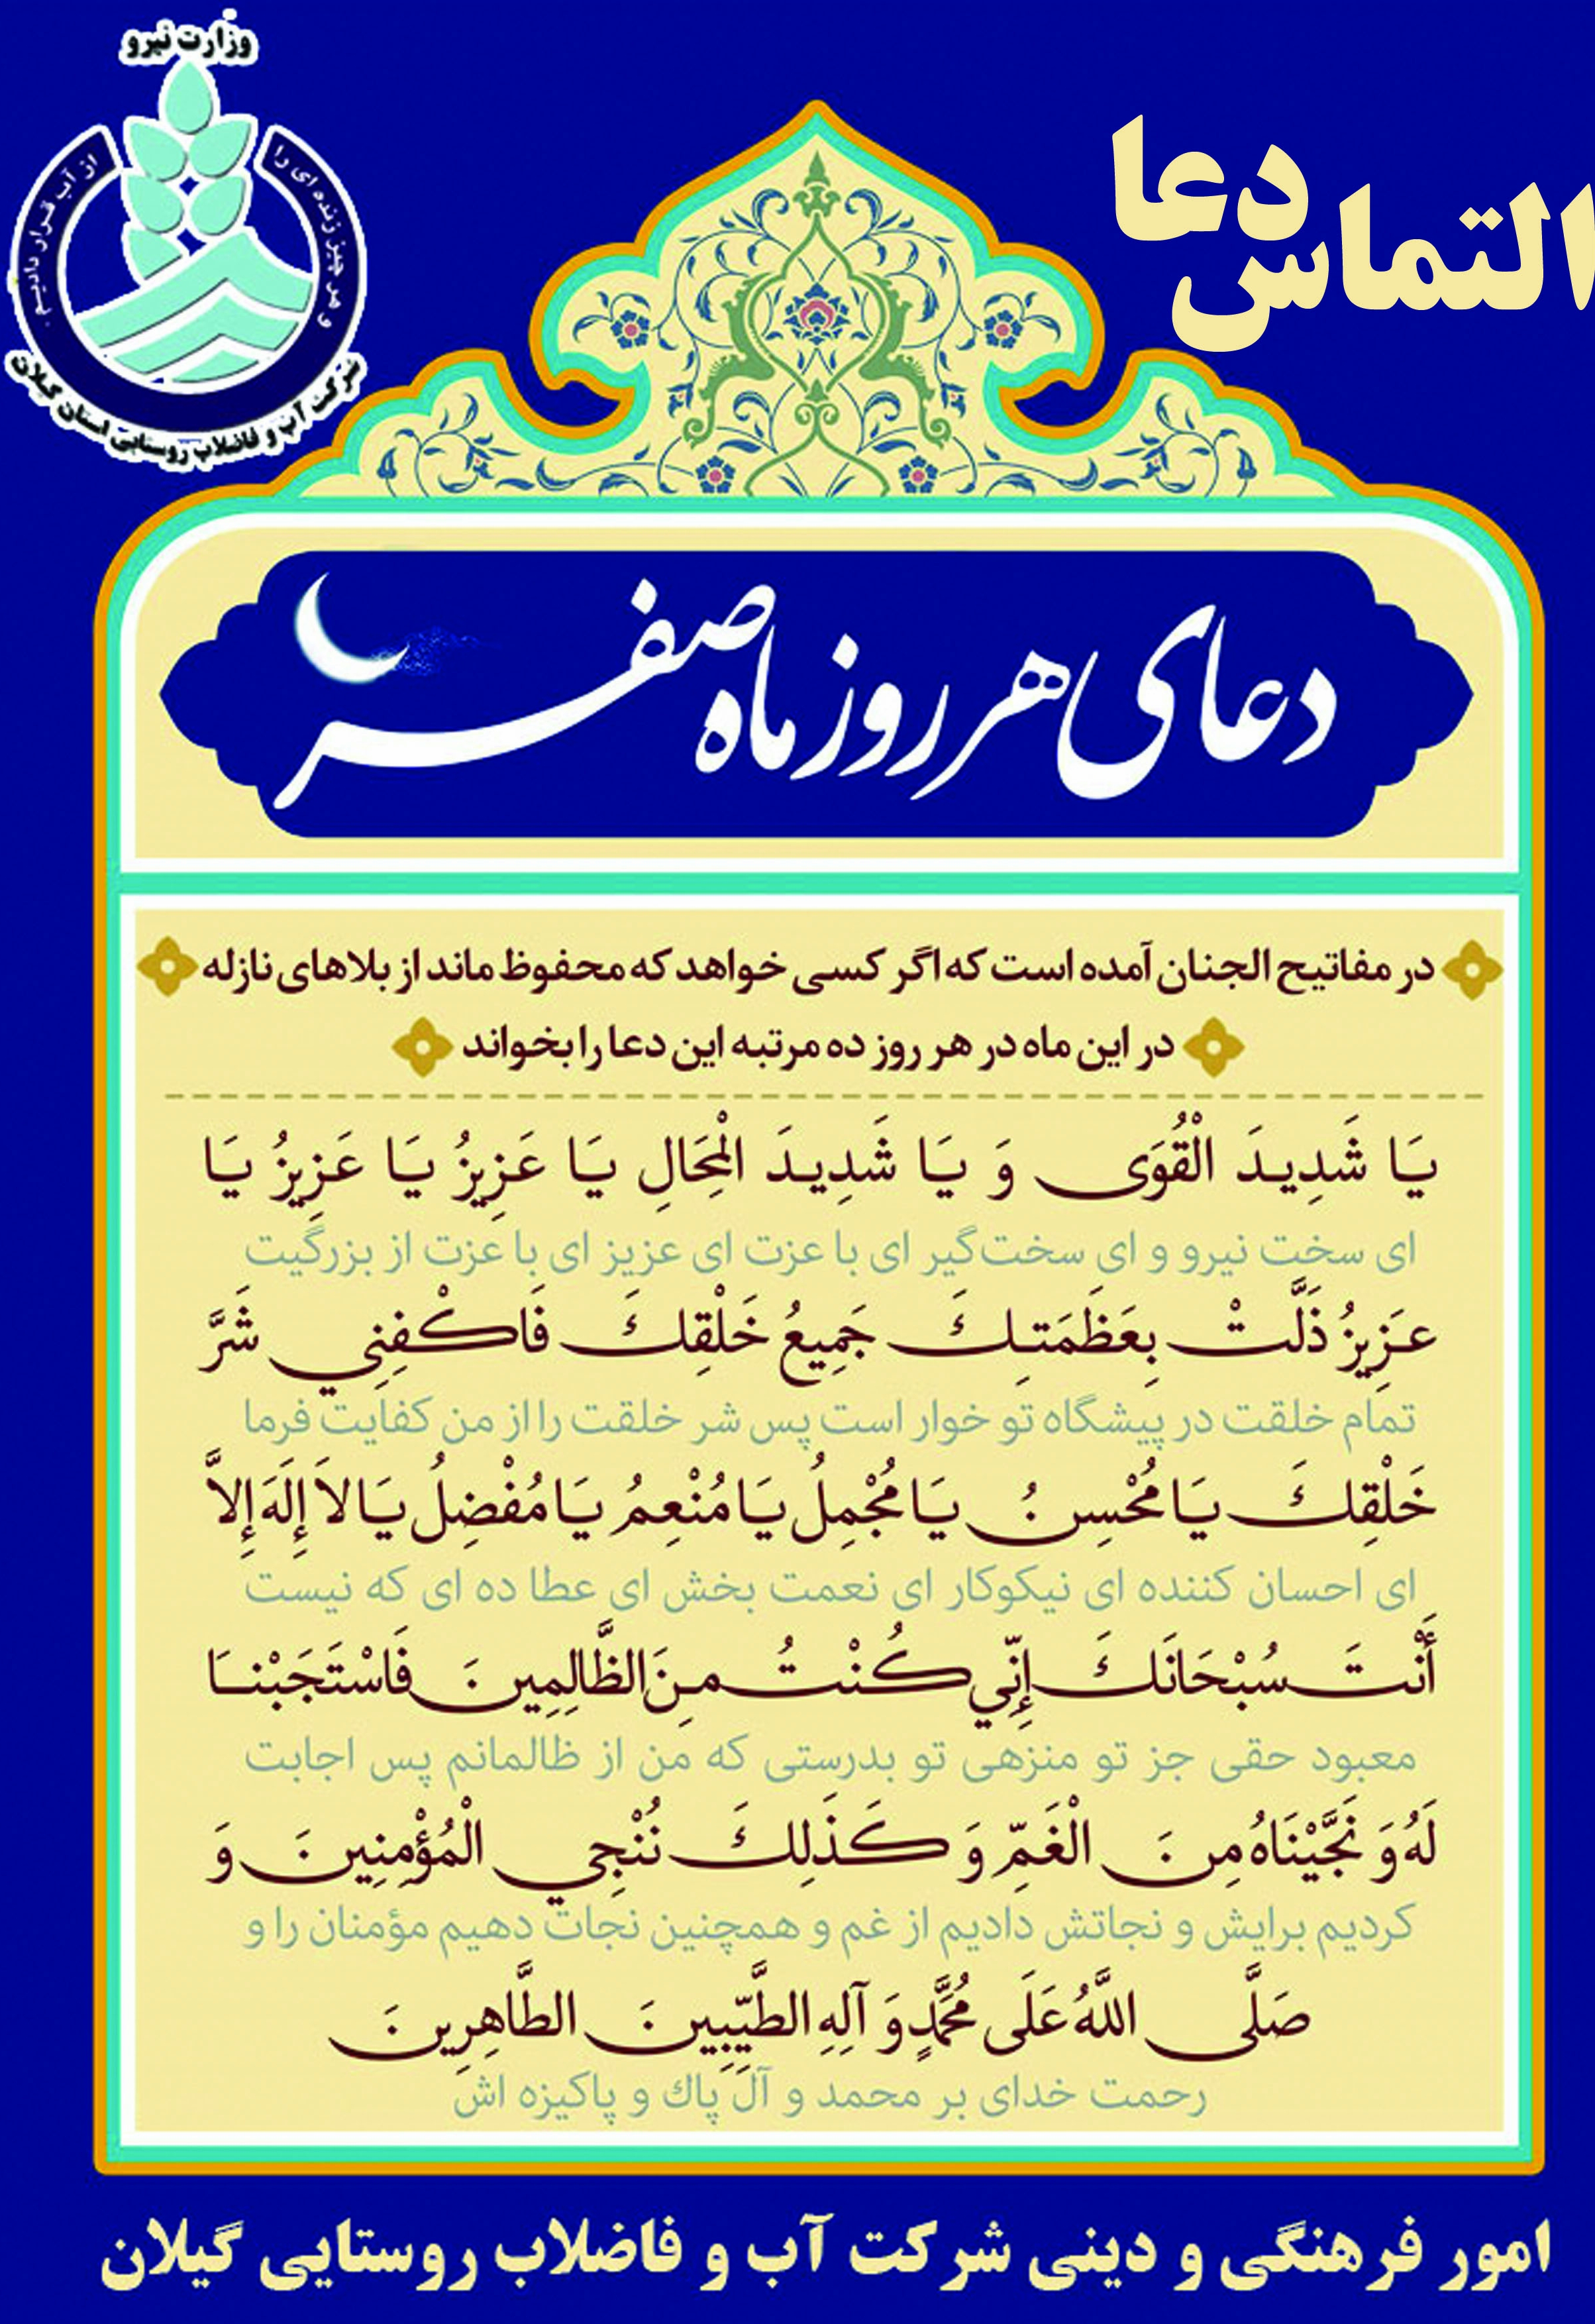 وزارت نیرو
و هر چیز زنده ای را
از آب قرار دادیم.
شرکت آب و فاضلاب روستایی استان گیلان
التماس دعا
دعای هر روز ماه صفر
در مفاتیح الجنان آمده است که اگر کسی خواهد که محفوظ ماند از بلاهای نازله
در این ماه در هر روز ده مرتبه این دعا را بخواند
يَا شَدِيدَ الْقُوَى وَ يَا شَدِيدَ الْمِحَالِ يَا عَزِيزُ يَا عَزِيزُ يَا
ای سخت نیرو و ای سخت‌گیر ای با عزت ای عزیز ای با عزت از بزرگیت
عَزِيزُ ذَلَّتْ بِعَظَمَتِكَ جَمِيعُ خَلْقِكَ فَاكْفِنِي شَرَّ
تمام خلقت در پیشگاه تو خوار است پس شر خلقت را از من کفایت فرما
خَلْقِكَ يَا مُحْسِنُ يَا مُجْمِلُ يَا مُنْعِمُ يَا مُفْضِلُ يَا لاَ إِلَهَ إِلاَّ
ای احسان کننده ای نیکوکار ای نعمت بخش ای عطا ده ای که نیست
أَنْتَ سُبْحَانَكَ إِنِّي كُنْتُ مِنَ الظَّالِمِينَ فَاسْتَجَبْنَا
معبود حقی جز تو منزهی تو بدرستی که من از ظالمانم پس اجابت
لَهُ وَ نَجَّيْنَاهُ مِنَ الْغَمِّ وَ كَذَلِكَ نُنْجِي الْمُؤْمِنِينَ وَ
کردیم برایش و نجاتش دادیم از غم و همچنین نجات دهیم مؤمنان را و
صَلَّى اللَّهُ عَلَى مُحَمَّدٍ وَ آلِهِ الطَّيِّبِينَ الطَّاهِرِينَ
رحمت خدای بر محمد و آل پاك و پاکیزه اش
امور فرهنگی و دینی شرکت آب و فاضلاب روستایی گیلان